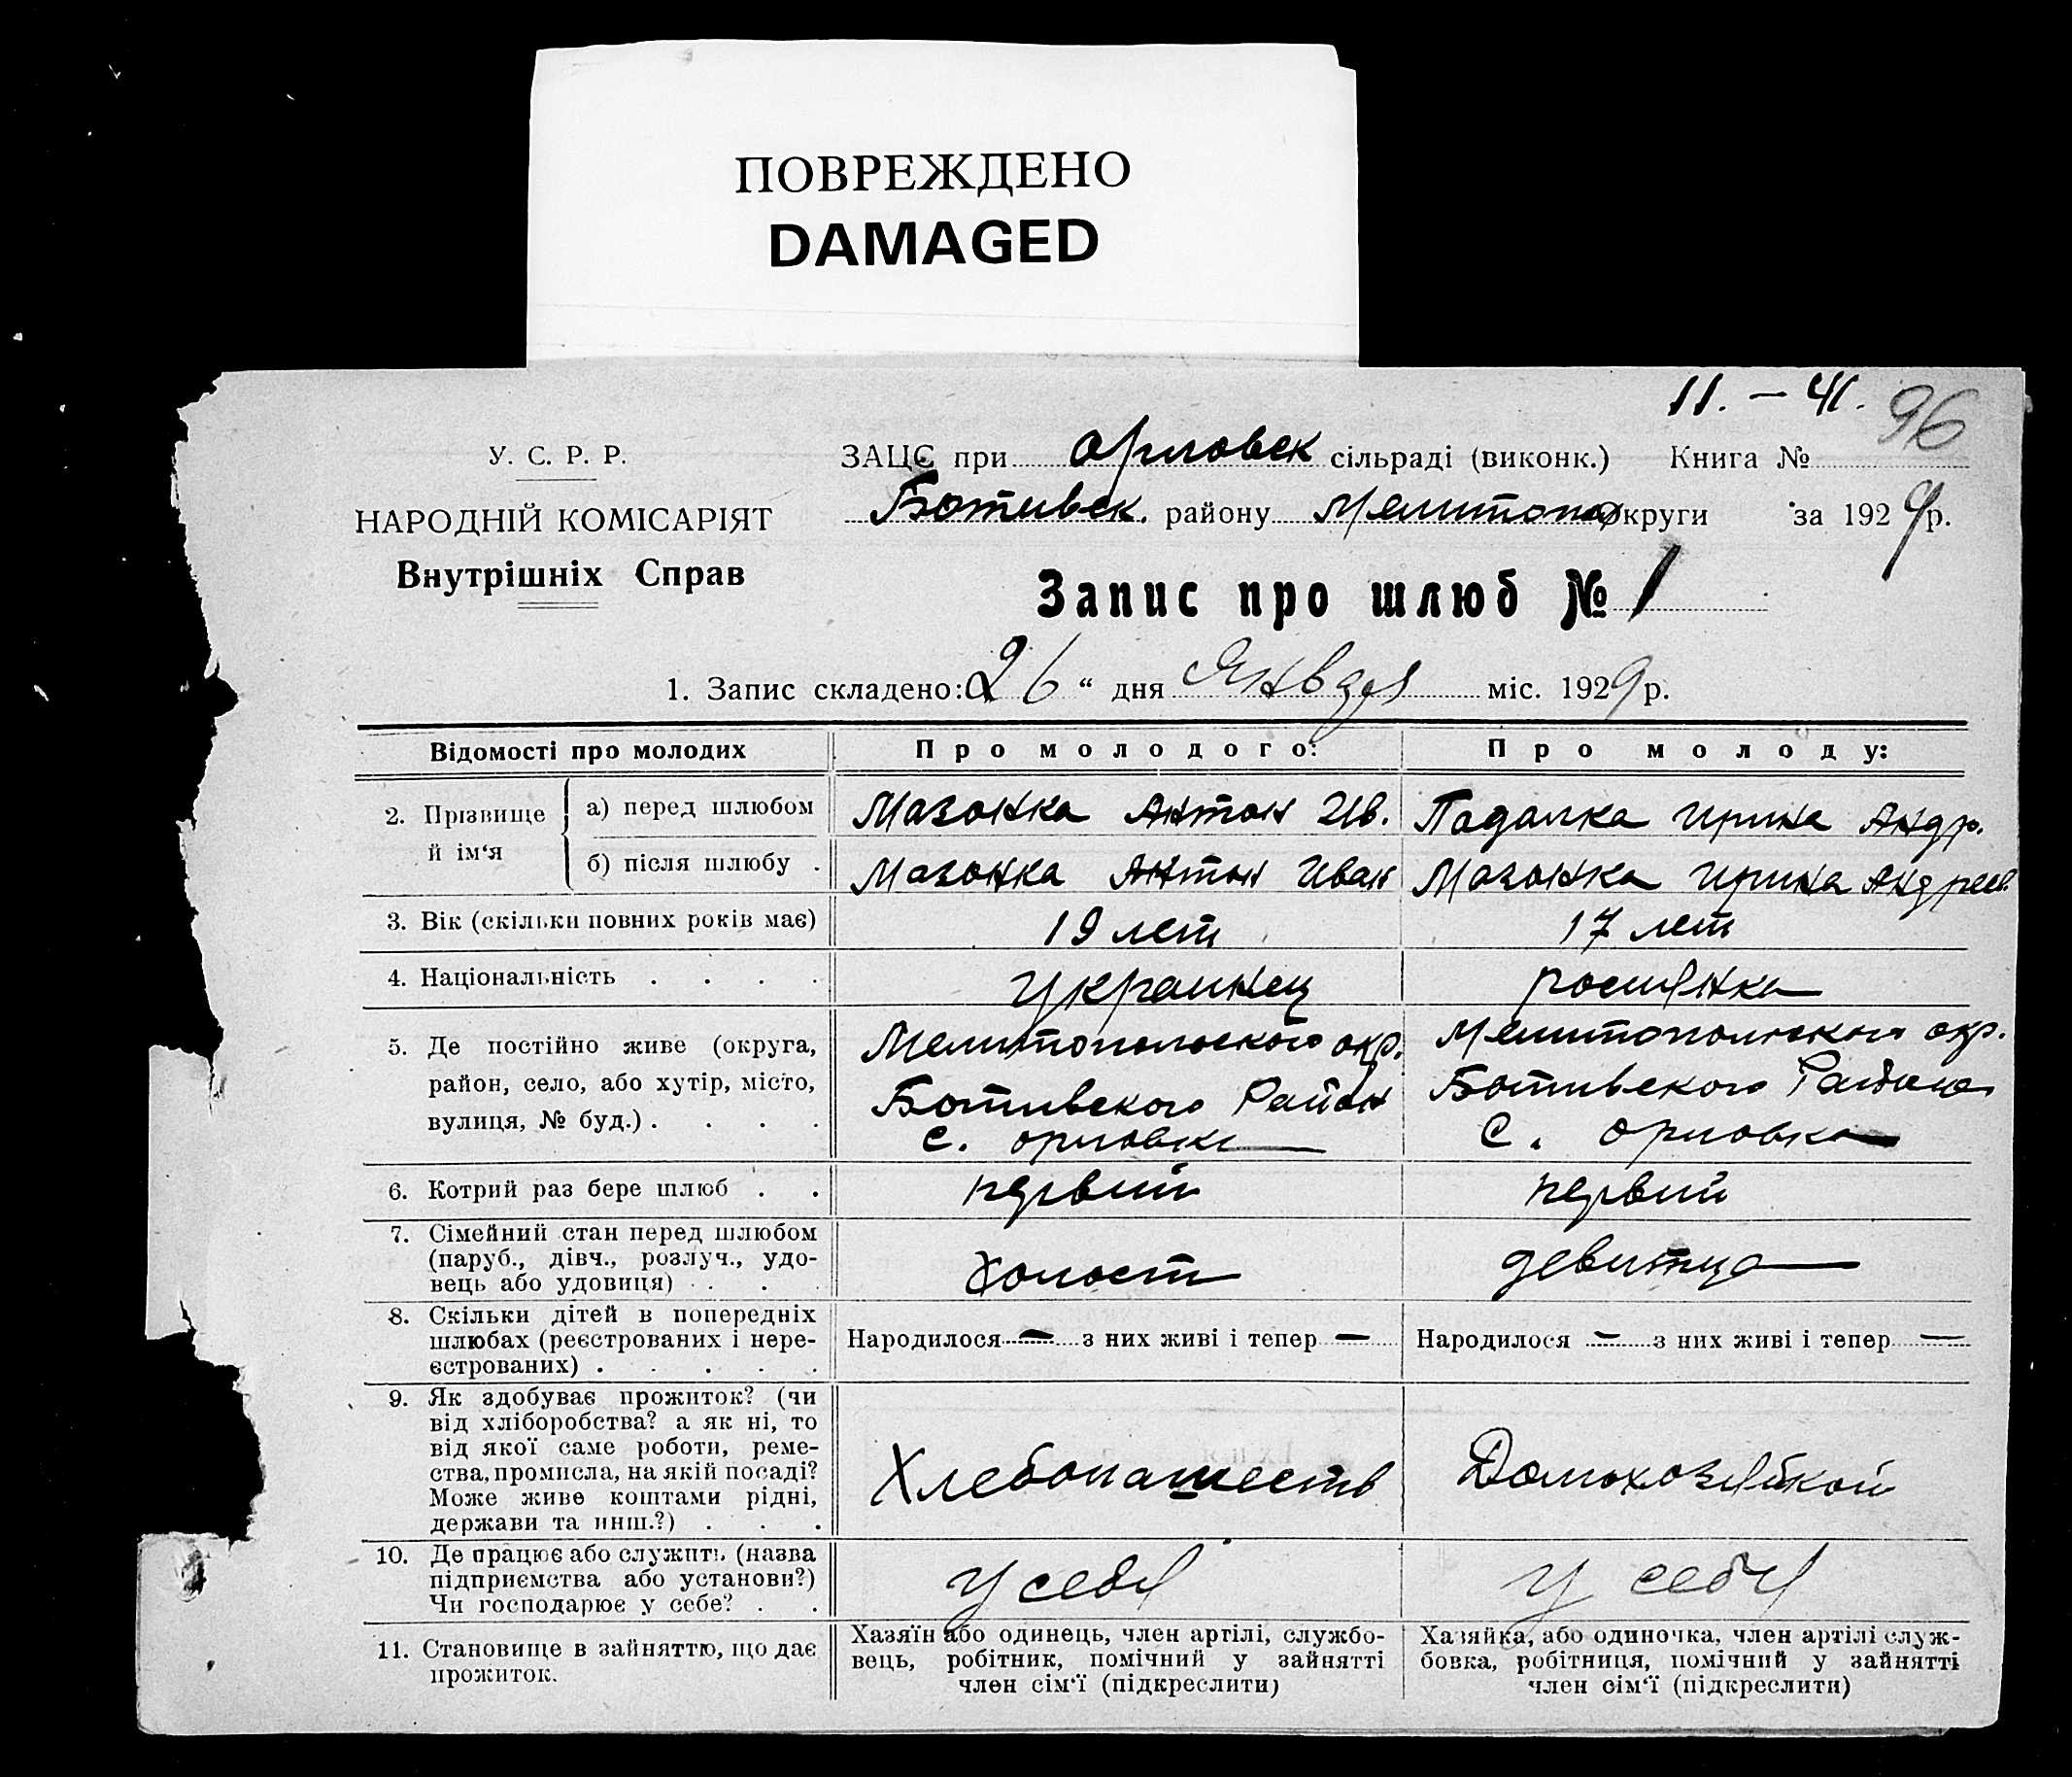 ПОВРЕЖДЕНО
DAMAGED
11. – 41. 96
У. С. Р. Р.
НАРОДНІЙ КОМІСАРІЯТ
Внутрішніх Справ
ЗАЦС при Орловск сільраді (виконк.) Книга №
Ботивск. району Мелитоп округи за 1929 р.
Запис про шлюб № 1
1. Запис складено: 26 “ дня Января міс. 1929 р.
Відомості про молодих Про молодого: Про молоду:
2. Прізвище й ім‘я
а) перед шлюбом Мазонка Антон Ив. Падалка Ирина Андр.
б) після шлюбу . Мазонка Антон Иван Мазонка Ирина Андреев.
3. Вік (скільки повних років має) 19 лет 17 лет
4. Національність . . . . Украинец росиянка
5. Де постійно живе (округа,
район, село, або хутір, місто,
вулиця, № буд.) . . . .
Мелитопольского окр.
Ботивского Район
с. орловка
Мелитопольского окр.
Ботивского Района
С. орловка
6. Котрий раз бере шлюб . . первий первий
7. Сімейний стан перед шлюбом
(паруб., дівч., розлуч., удо-
вець або удовиця) . . .
Холост
девитца
8. Скільки дітей в попередніх
шлюбах (реєстрованих і нере-
єстрованих) . . . . .
Народилося — з них живі і тепер —
Народилося — з них живі і тепер —
9. Як здобуває прожиток? (чи
від хліборобства? а як ні, то
від якої саме роботи, реме-
ства, промисла, на якій посаді?
Може живе коштами рідні,
держави та инш.?) . . .
Хлебопашеств
Домохозяйкой
10. Де працює або служить (назва
підприємства або установи?)
Чи господарює у себе? . .
у себя
у себя
11. Становище в зайняттю, що дає
прожиток.
Хазяїн або одинець, член артілі, службо-
вець, робітник, помічний у зайнятті
член сім‘ї (підкреслити)
Хазяйка, або одиночка, член артілі служ-
бовка, робітниця, помічний у зайнятті
член сім‘ї (підкреслити)